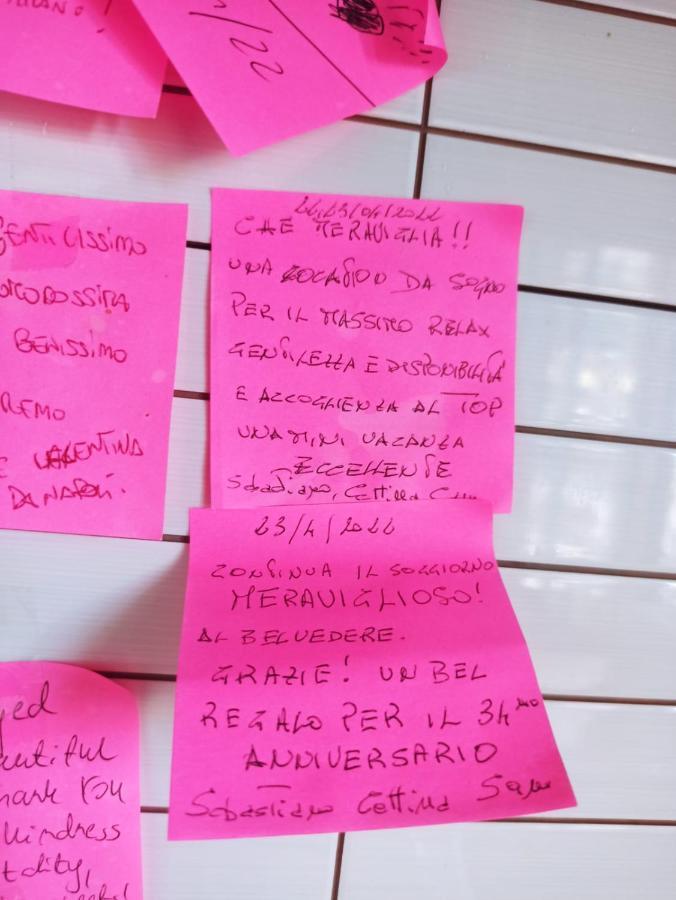 /22
GENTILISSIMO
BENISSIMO
VALENTINA
DA NAPOLI.
22,23/04/2022
CHE MERAVIGLIA!!
UNA LOCATION DA SOGNO
PER IL MASSIMO RELAX
GENTILEZZA E DISPONIBILITÀ
E ACCOGLIENZA AL TOP
UNA MINI VACANZA
ECCELLENTE
Sebastiano, Cettina
23/4/2022
CONTINUA IL SOGGIORNO
MERAVIGLIOSO!
AL BELVEDERE.
GRAZIE! UN BEL
REGALO PER IL 34mo
ANNIVERSARIO
Sebastiano Cettina
yed
autiful
hank you
kindness